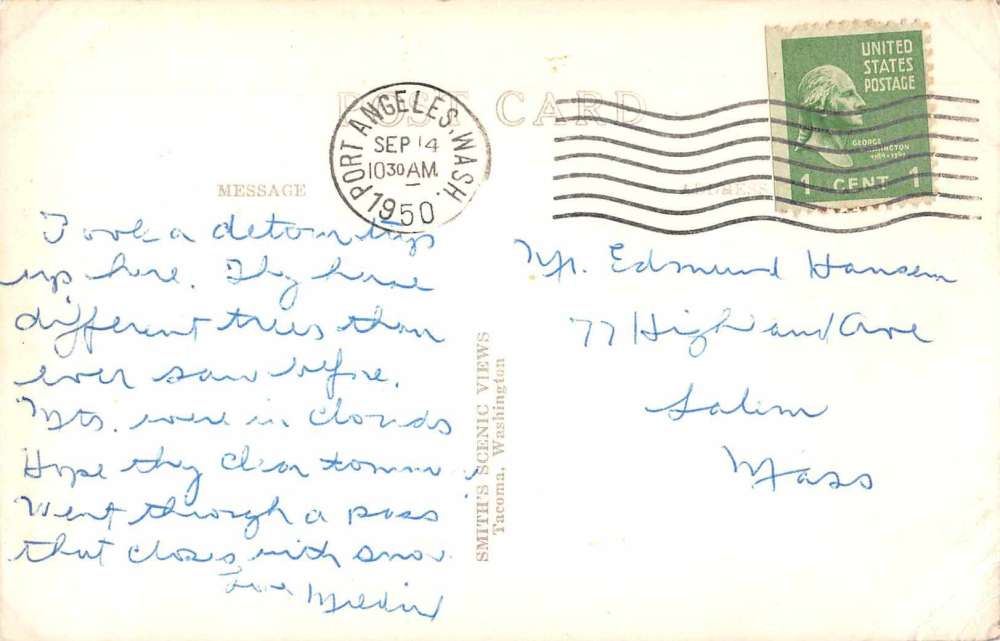 POST CARD
PORT ANGELES, WASH.
SEP 14
10 30 AM
1950
UNITED
STATES
POSTAGE
GEORGE
WASHINGTON
1789-1797
1 CENT 1
MESSAGE
ADDRESS
Took a detour trip
up here. They have
different trees than
ever saw before.
Mts. were in clouds
Hope they clear tomorr
Went through a pass
that closes with snow
Love Mildred
SMITH'S SCENIC VIEWS
Tacoma, Washington
Mr. Edmund Hansen
77 Highland Ave
Salem
Mass